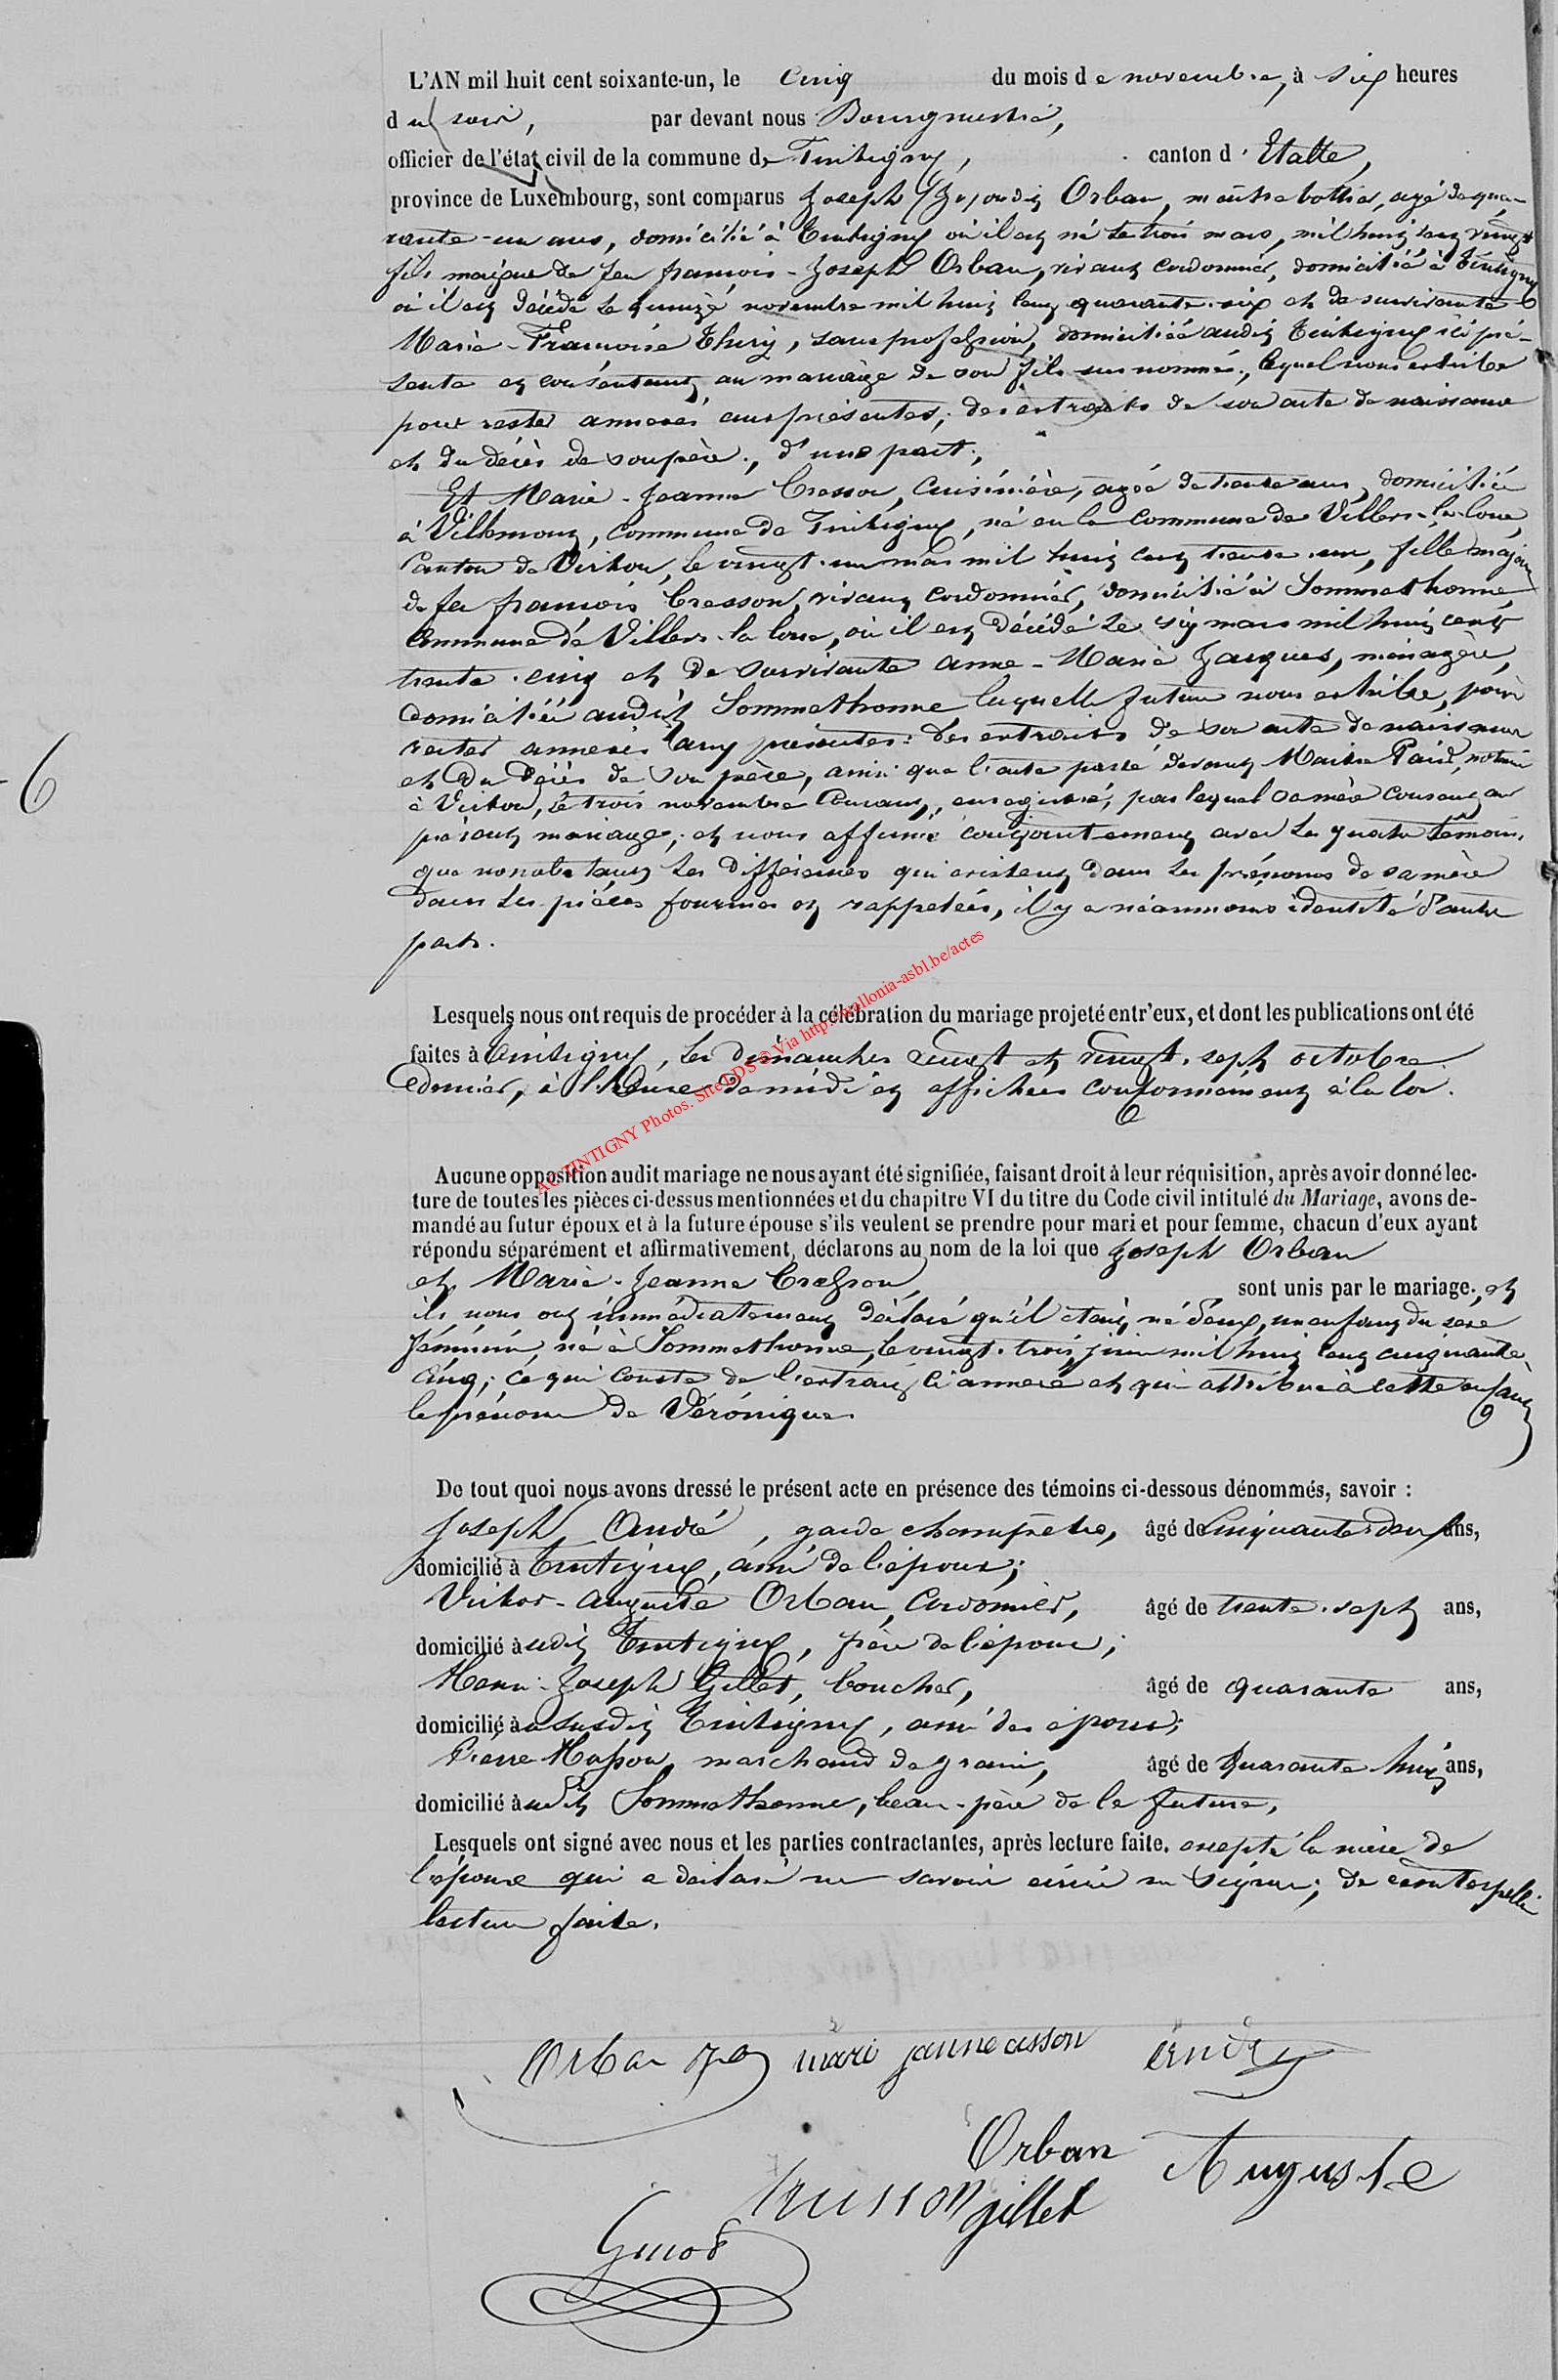 L'AN mil huit cent soixante-un, le Cinq du mois de novembre, à six heures
du soir, par devant nous Bourgmestre,
officier de l'état civil de la commune de Tintigny, canton d'Etalle,
province de Luxembourg, sont comparus Joseph Orban, maître bottier, agé de qua-
rante-un ans, domicilié à Tintigny où il est né le trois mars, mil huit cent vingt
fils majeur de feu françois-Joseph Orban, vivant cordonnier, domicilié à Tintigny
où il est décédé le quinze novembre mil huit cent quarante-six et de survivante
Marie-Françoise Thiry, sans profession, domiciliée audit Tintigny ici pré-
sente et consentant au mariage de son fils sus nommé, lequel nous exhibe
pour rester annexés aux présentes, des extraits de son acte de naissance
et du décès de son père, d'une part,
Et Marie-Jeanne Cresson, Cuisinière, agée de trente ans, domiciliée
à Villemont, commune de Tintigny, né en la commune de Villers-la-loue,
Canton de Virton, le vingt-un mai mil huit cent trente-un, fille majeure
de feu françois Cresson, vivant cordonnier, domicilié à Sommethonne,
Commune de Villers-la-loue, où il est décédé le six mars mil huit cent
trente-cinq et de survivante anne-Marie Jacques, ménagère,
domiciliée audit Sommethonne, laquelle future nous exhibe, pour
rester annexés aux présentes: des extraits de son acte de naissance
et du décès de son père, ainsi que l'acte passé devant Maître notaire
à Virton, le trois novembre Courant, enregistré, par lequel sa mère consent au
présent mariage; et nous affirme conjointement avec les quatre témoins,
que nonobstant les différences qui existent dans les prénoms de sa mère
dans les pièces fournies et rappelées, il y a néanmoins identité d'autre
part.
6
Lesquels nous ont requis de procéder à la célébration du mariage projeté entr'eux, et dont les publications ont été
faites à Tintigny, les dimanches vingt et vingt-sept octobre
dernier, à l'heure de midi et affichées conformément à la loi.
ACTINTIGNY Photos. Site LDS © Via http://wallonia-asbl.be/actes
Aucune opposition audit mariage ne nous ayant été signifiée, faisant droit à leur réquisition, après avoir donné lec-
ture de toutes les pièces ci-dessus mentionnées et du chapitre VI du titre du Code civil intitulé du Mariage, avons de-
mandé au futur époux et à la future épouse s'ils veulent se prendre pour mari et pour femme, chacun d'eux ayant
répondu séparément et affirmativement, déclarons au nom de la loi que Joseph Orban
et Marie-Jeanne Cresson, sont unis par le mariage, et
ils nous ont immédiatement déclaré qu'il était né d'eux, un enfant du sexe
féminin, né à Sommethonne, le vingt-trois juin mil huit cent cinquante
cinq; ce qui conste de l'extrait ci annexé et qui attribue à cette enfant
le prénom de Véronique.
De tout quoi nous avons dressé le présent acte en présence des témoins ci-dessous dénommés, savoir :
Joseph André, garde champêtre, âgé de Cinquante-deux ans,
domicilié à Tintigny, ami de l'époux;
Victor-Auguste Orban, Cordonnier, âgé de trente-sept ans,
domicilié audit Tintigny, frère de l'époux;
Henri-Joseph Gillet, boucher, âgé de quarante ans,
domicilié à susdit Tintigny, ami des époux;
Pierre Husson, marchand de grains, âgé de Quarante huit ans,
domicilié audit Sommethonne, beau-père de la future,
Lesquels ont signé avec nous et les parties contractantes, après lecture faite. excepté la mère de
l'époux qui a déclaré ne savoir écrire ni signer; de ce interpellée
lecture faite.
Orban mari janne cesson andre
Orban Auguste
husson gillet